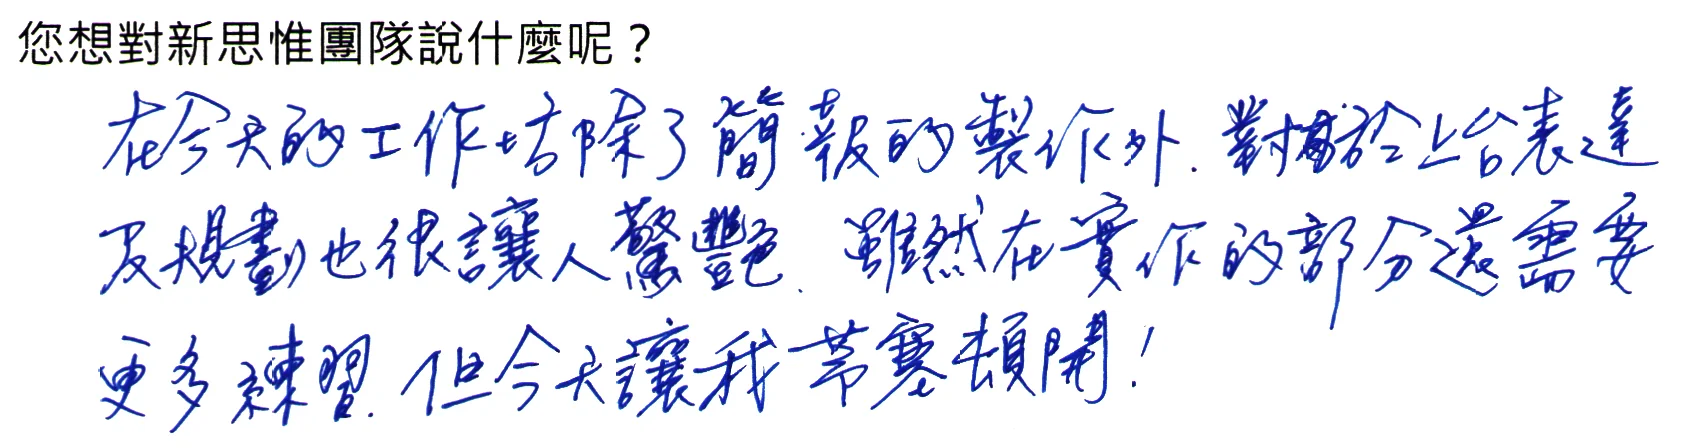 您想對新思惟團隊說什麼呢？
在今天的工作坊除了簡報的製作外.對於上台表達
及規劃也很讓人驚艷.雖然在實作的部分還需要
更多練習.但今天讓我茅塞頓開!